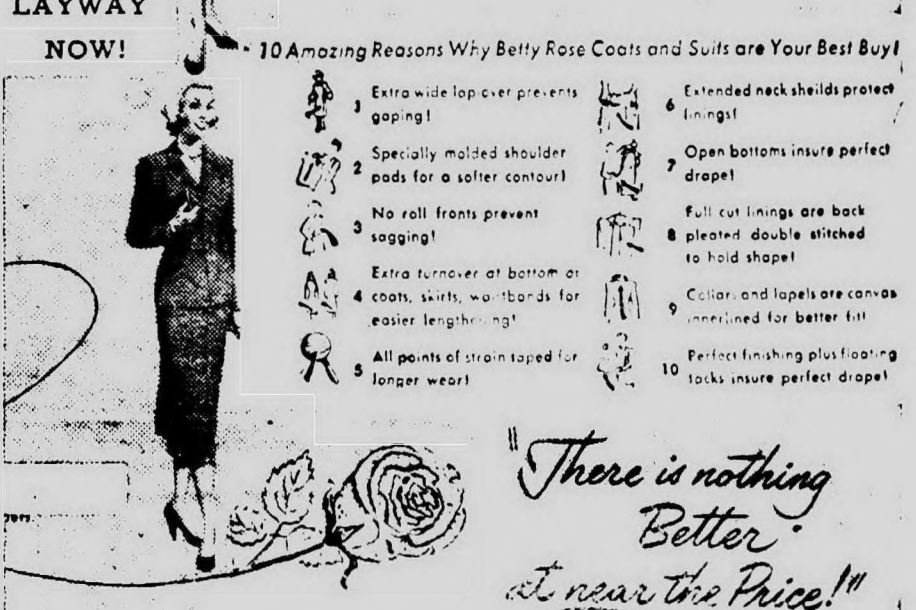 LAYWAY
NOW!
10 Amazing Reasons Why Betty Rose Coats and Suits are Your Best Buy!
1 Extra wide lap-over prevents
gaping!
2 Specially molded shoulder
pads for a softer contour!
3 No roll fronts prevent
sagging!
4 Extra turnover at bottom of
coats, skirts, waistbands for
easier lengthening!
5 All points of strain taped for
longer wear!
6 Extended neck sheilds protect
linings!
7 Open bottoms insure perfect
drape!
8 Full cut linings are back
pleated double stitched
to hold shape!
9 Collars and lapels are canvas
innerlined for better fit!
10 Perfect finishing plus floating
tacks insure perfect drape!
"There is nothing
Better
at near the Price!"